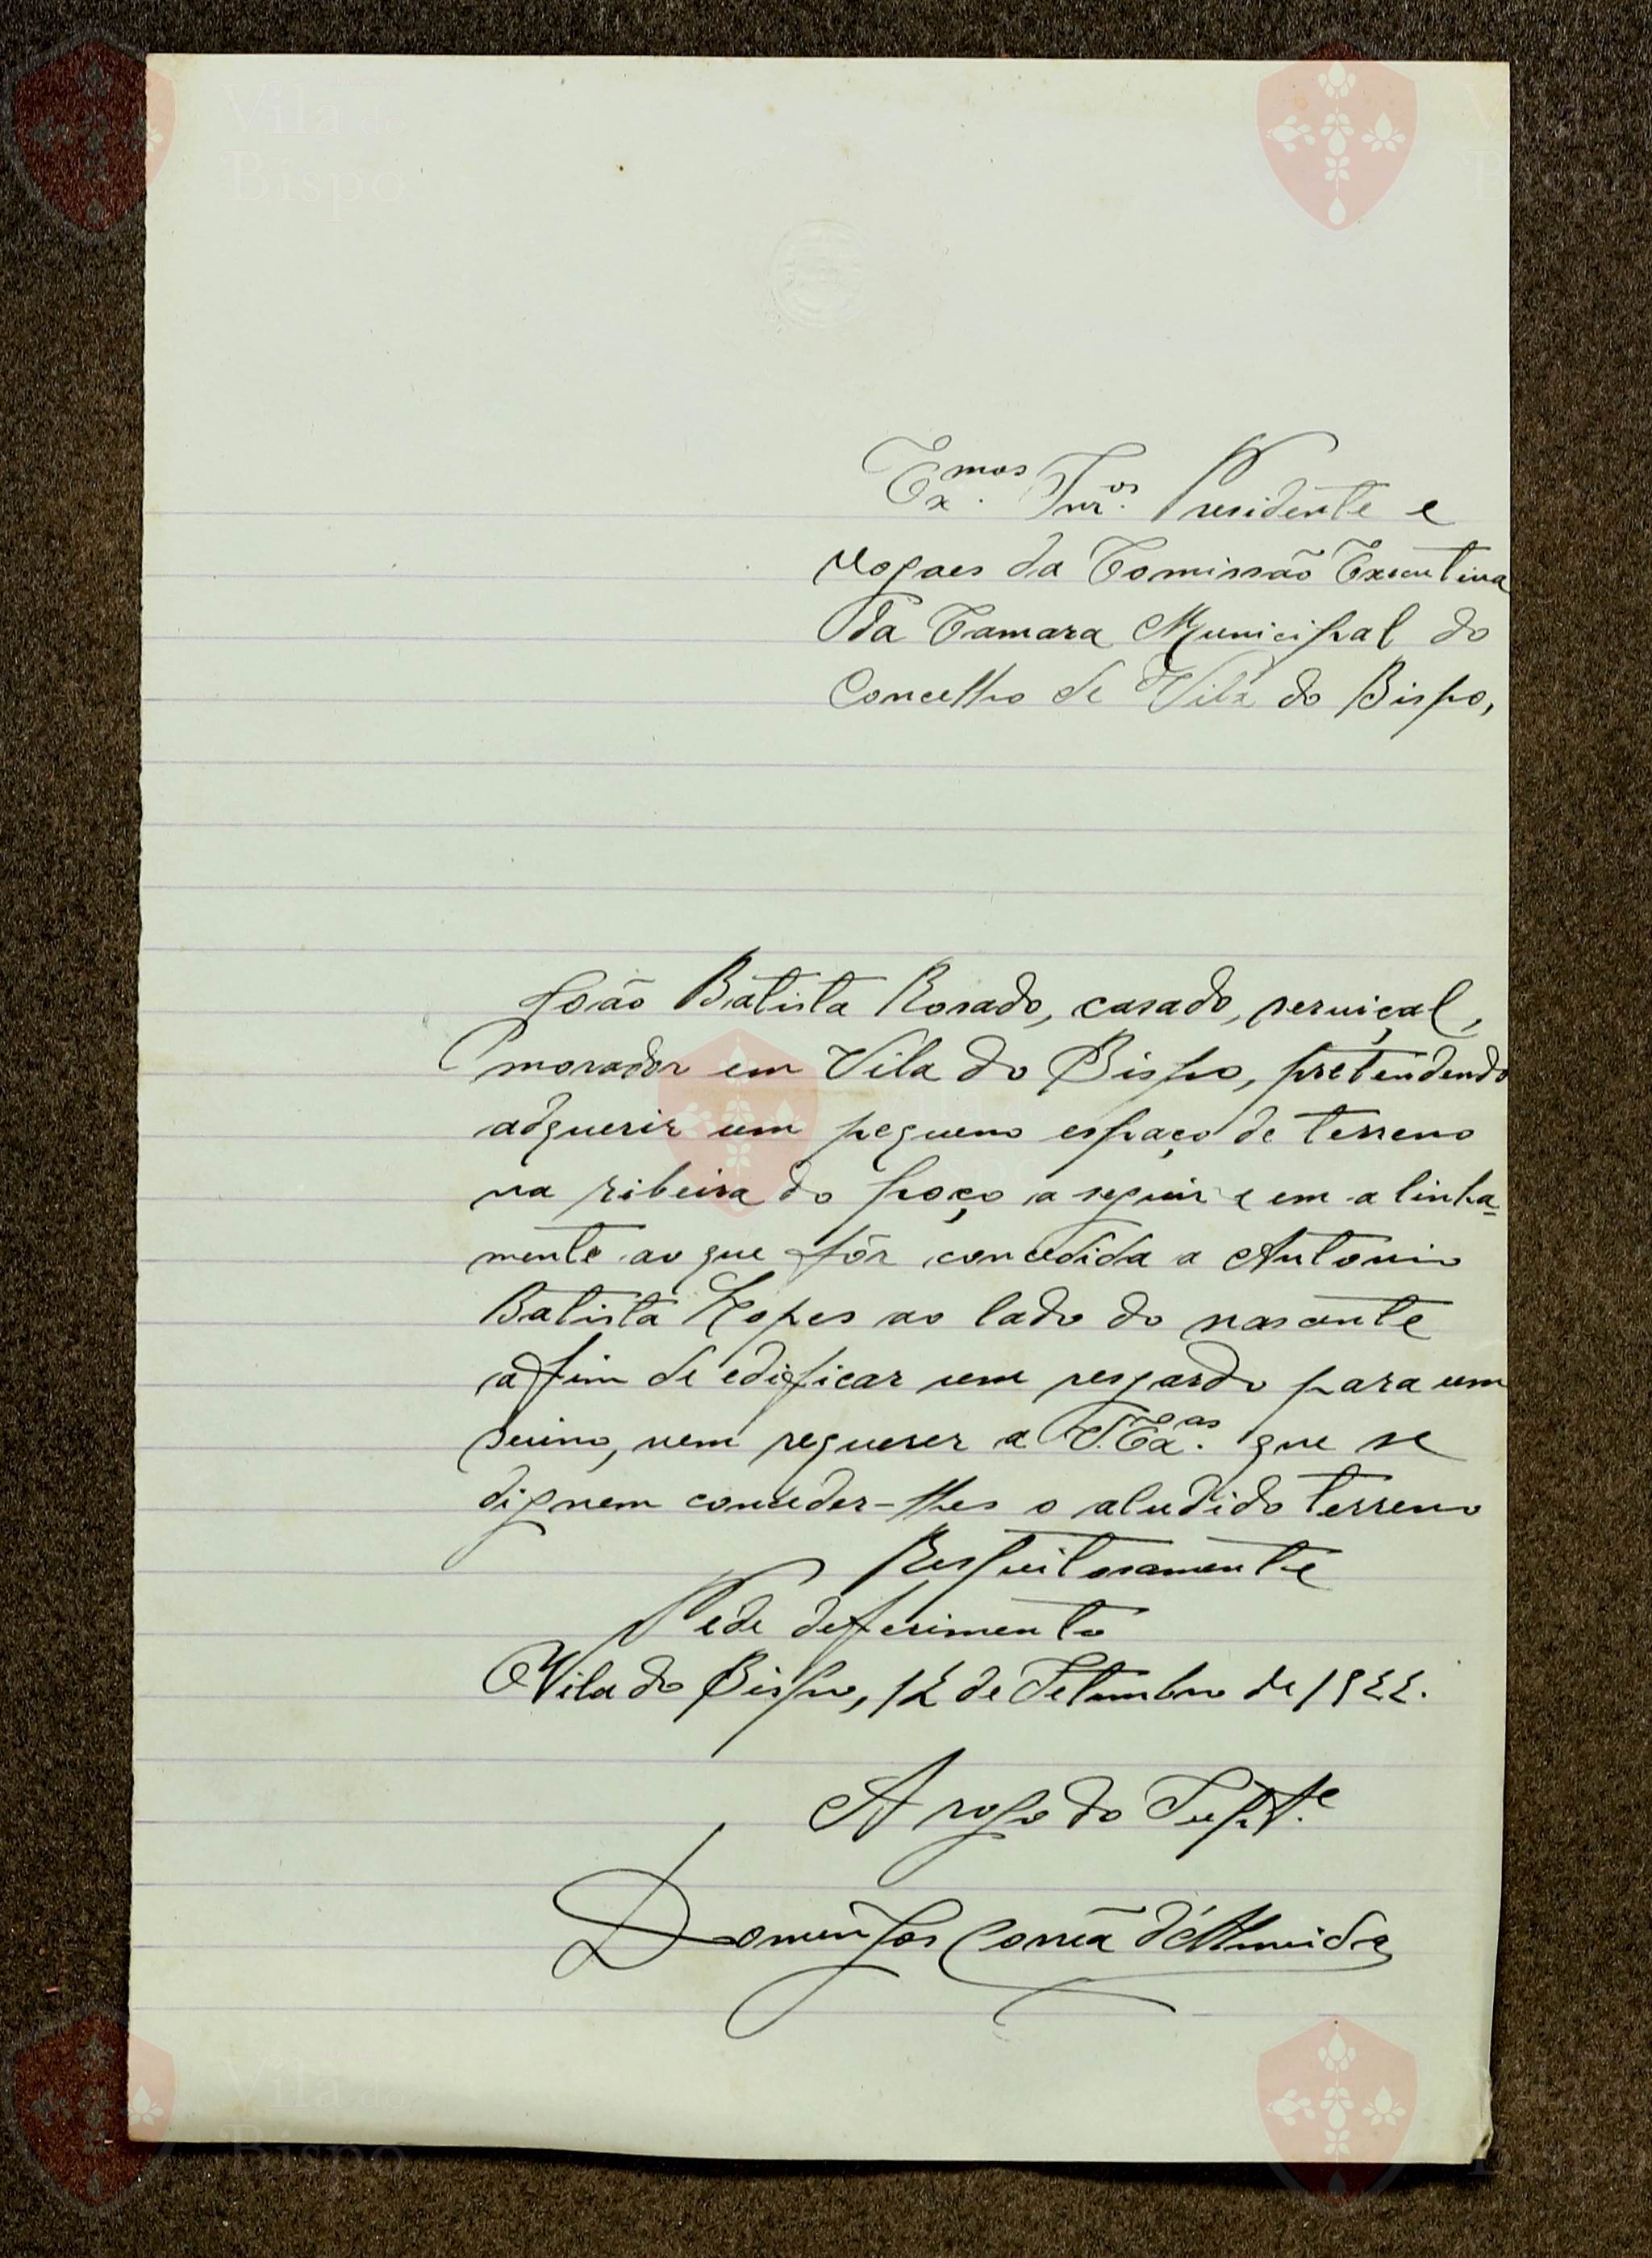 Exmos. Snros. Presidente e
Vogaes da Comissão Executiva
da Camara Municipal do
Concelho de Vila do Bispo,
João Batista Rosado, casado, serviçal,
morador em Vila do Bispo, pretendendo
adquerir um pequeno espaço de terreno
na ribeira do poço a seguir e em a linha-
mento ao que fôr concedida a Antonio
Batista Lopes ao lado do nascente
a fim de edificar um resgardo para um
suino, vem requerer a V. Exas. que se
dignem conceder-lhes o aludido terreno
Respeitosamente
Pede deferimento
Vila do Bispo, 12 de Setembro de 1922.
A rogo do Supte.
Domingos Corrêa d'Almeida
Vila do
Bispo
Vila do
Bispo